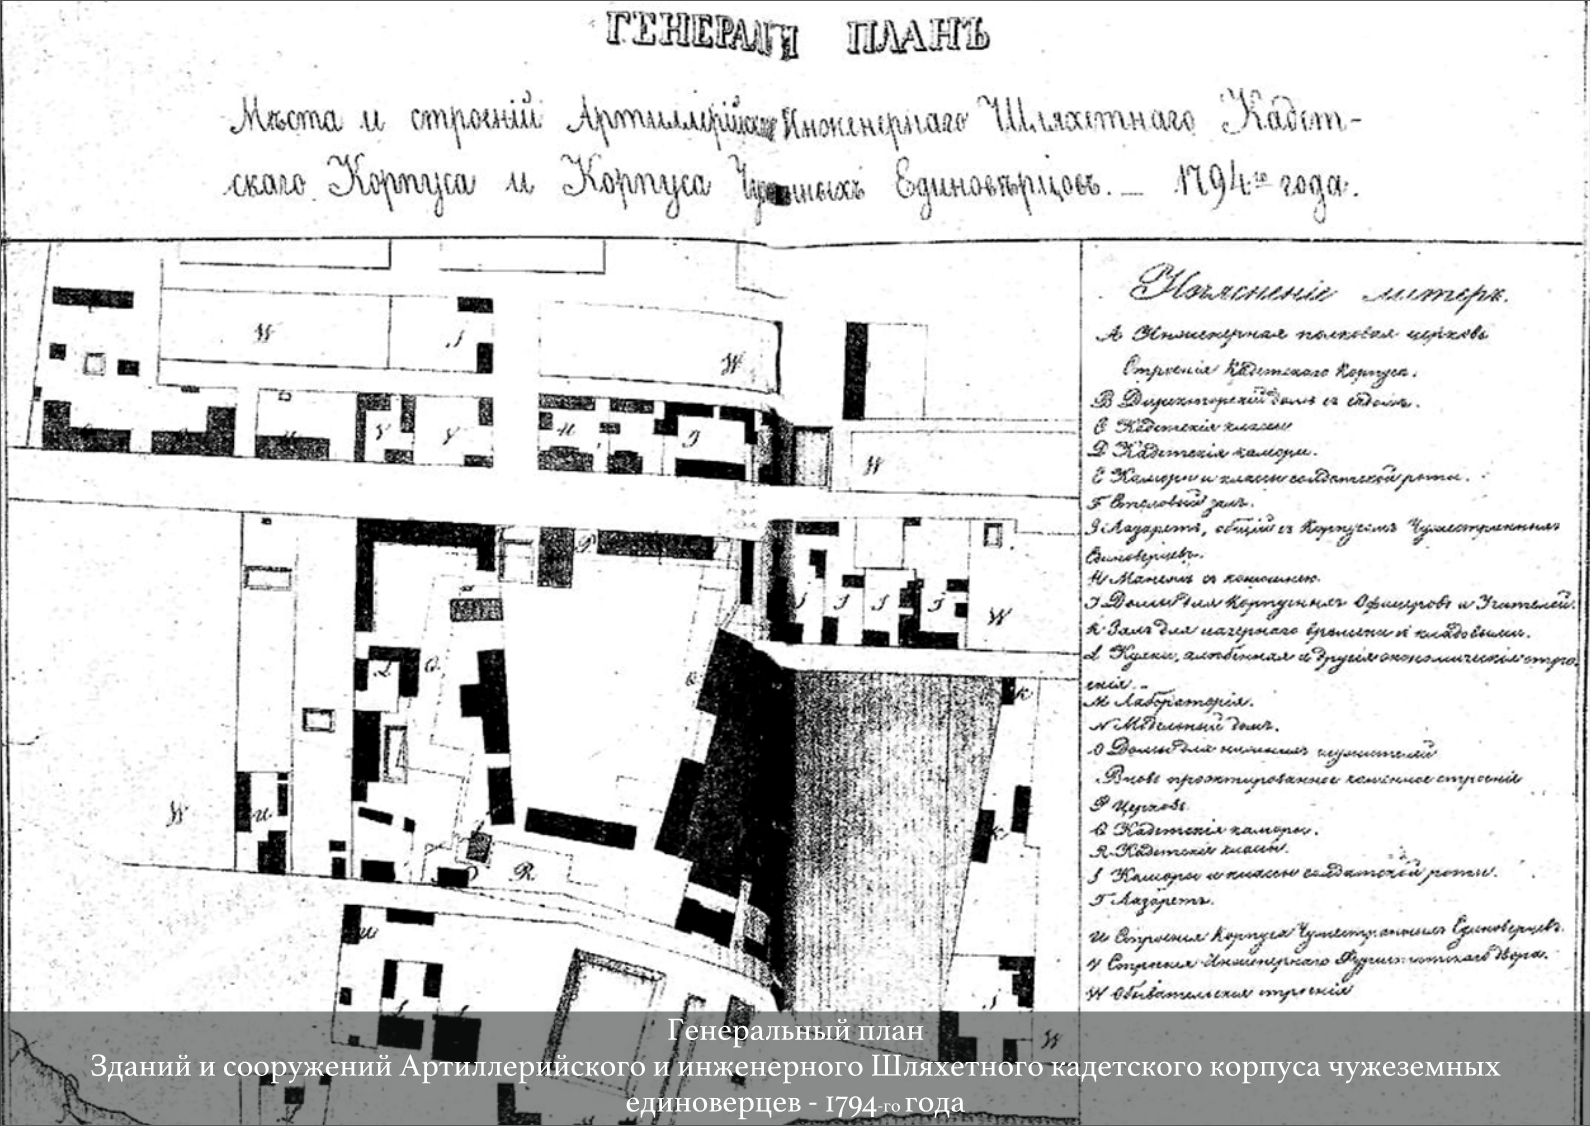 ГЕНЕРАЛ ПЛАНЪ
Мѣста и строенiй Артиллерiйскаго Инженернаго Шляхетнаго Кадет-
скаго Корпуса и Корпуса Единовѣрцовъ. — 1794го года.
Изъясненiе литеръ.
А Инженерная полковая церковь
Строенiя Кадетскаго Корпуса.
В Директорскiй домъ съ садомъ.
С Кадетскiя классы
D Кадетскiя каморы.
Е Каморы и классы солдатской роты.
F Столовый залъ.
Лазаретъ, общiй съ Корпусомъ Чужестранныхъ
Единоверцевъ.
Н Манежъ съ конюшнею.
I Домы для Корпусныхъ Офицеровъ и Учителей.
К Залъ для лагернаго времени и кладовыми.
L Кухни, хлѣбенная и другiя экономическiя стро-
енiя.
М Лабораторiя.
N Модельный домъ.
О Домы для нижнихъ служителей
Вновь проэктированное каменное строенiе
Р Церковь
Q Кадетскiя каморы.
R Кадетскiя классы.
S Каморы и классы солдатской роты.
Т Лазаретъ.
U Строенiя Корпуса Единоверцевъ.
V Строенiя Инженернаго двора.
W Обывательскiя строенiя
Генеральный план
Зданий и сооружений Артиллерийского и инженерного Шляхетного кадетского корпуса чужеземных
единоверцев - 1794-го года